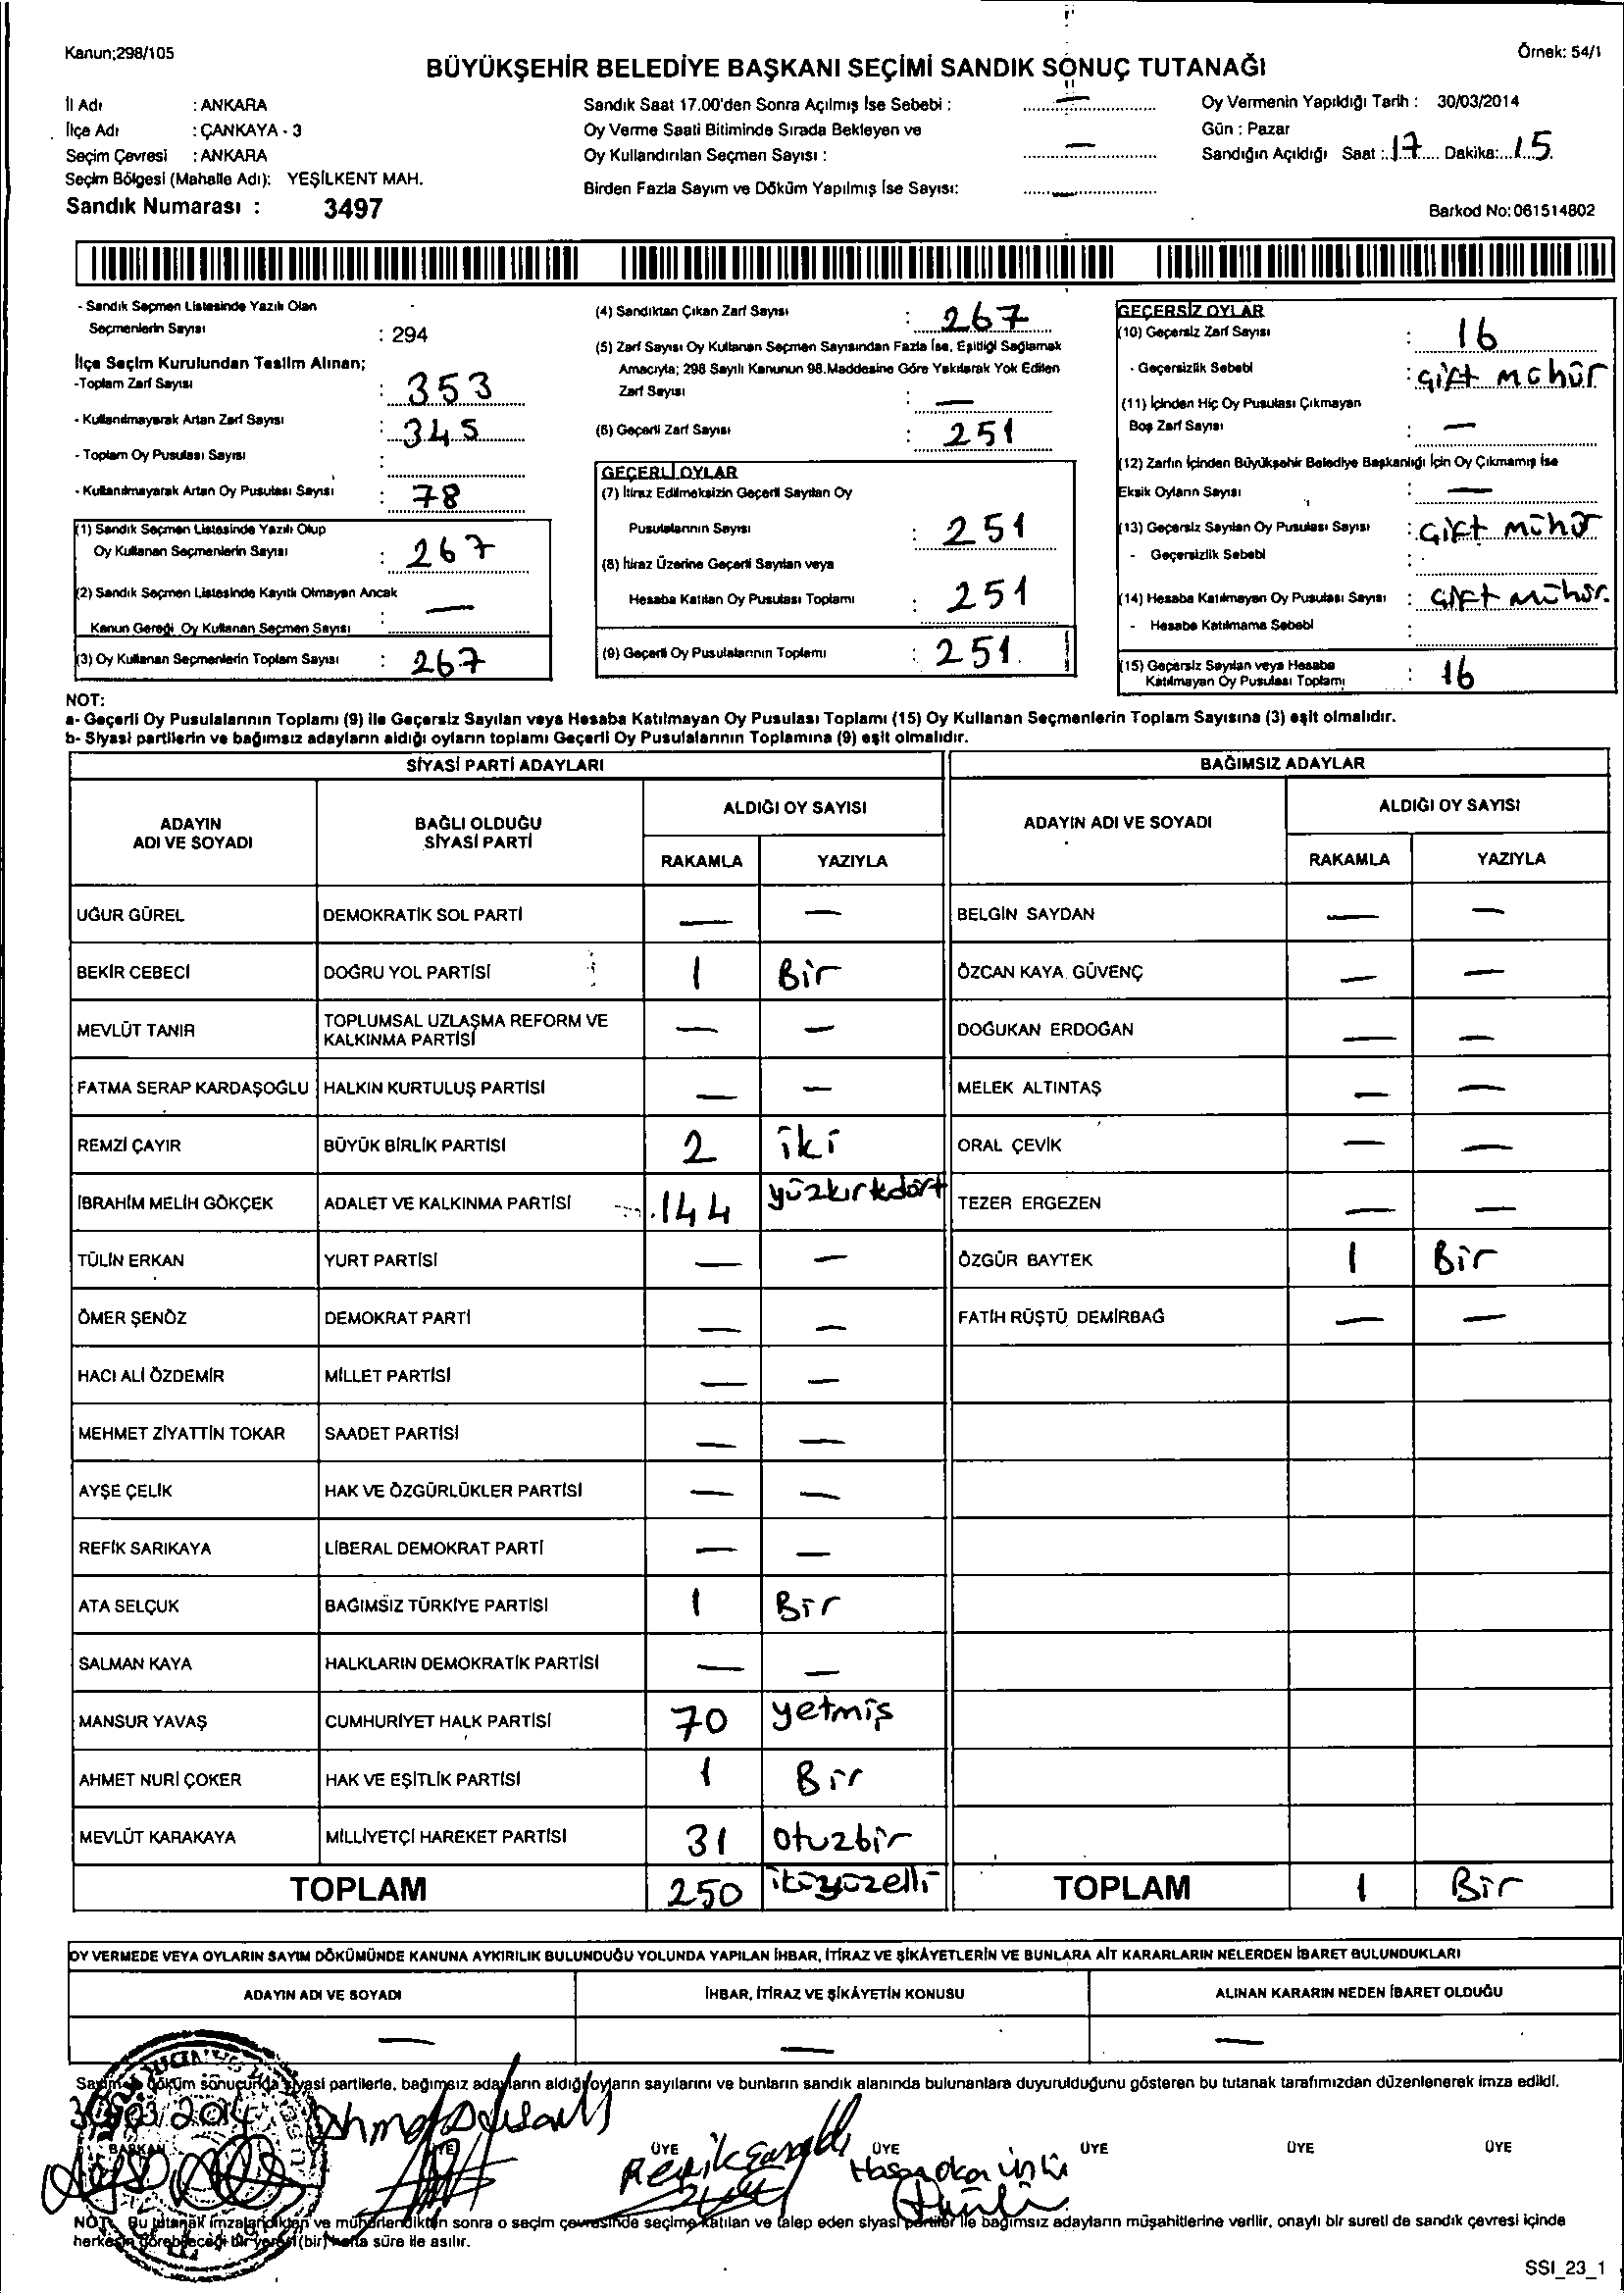 Kanun;298/105
Örnek: 54/1
BÜYÜKŞEHİR BELEDİYE BAŞKANI SEÇİMİ SANDIK SONUÇ TUTANAĞI
İl Adı : ANKARA
İlçe Adı : ÇANKAYA - 3
Seçim Çevresi : ANKARA
Seçim Bölgesi (Mahalle Adı): YEŞİLKENT MAH.
Sandık Numarası : 3497
Sandık Saat 17.00'den Sonra Açılmış İse Sebebi : —
Oy Verme Saati Bitiminde Sırada Bekleyen ve
Oy Kullandırılan Seçmen Sayısı : —
Birden Fazla Sayım ve Döküm Yapılmış İse Sayısı: —
Oy Vermenin Yapıldığı Tarih : 30/03/2014
Gün : Pazar
Sandığın Açıldığı Saat : 17 Dakika: 15
Barkod No: 061514802
- Sandık Seçmen Listesinde Yazılı Olan
Seçmenlerin Sayısı : 294
İlçe Seçim Kurulundan Teslim Alınan;
-Toplam Zarf Sayısı : 353
- Kullanılmayarak Artan Zarf Sayısı : 345
- Toplam Oy Pusulası Sayısı :
- Kullanılmayarak Artan Oy Pusulası Sayısı : 78
(1) Sandık Seçmen Listesinde Yazılı Olup
Oy Kullanan Seçmenlerin Sayısı : 267
(2) Sandık Seçmen Listesinde Kayıtlı Olmayan Ancak
Kanun Gereği Oy Kullanan Seçmen Sayısı : —
(3) Oy Kullanan Seçmenlerin Toplam Sayısı : 267
(4) Sandıktan Çıkan Zarf Sayısı : 267
(5) Zarf Sayısı Oy Kullanan Seçmen Sayısından Fazla İse, Eşitliği Sağlamak
Amacıyla; 298 Sayılı Kanunun 98.Maddesine Göre Yakılarak Yok Edilen
Zarf Sayısı : —
(6) Geçerli Zarf Sayısı : 251
GEÇERLİ OYLAR
(7) İtiraz Edilmeksizin Geçerli Sayılan Oy
Pusulalarının Sayısı : 251
(8) İtiraz Üzerine Geçerli Sayılan veya
Hesaba Katılan Oy Pusulası Toplamı : 251
(9) Geçerli Oy Pusulalarının Toplamı : 251
GEÇERSİZ OYLAR
(10) Geçersiz Zarf Sayısı : 16
- Geçersizlik Sebebi : çift mühür
(11) İçinden Hiç Oy Pusulası Çıkmayan
Boş Zarf Sayısı : —
(12) Zarfın İçinden Büyükşehir Belediye Başkanlığı İçin Oy Çıkmamış İse
Eksik Oyların Sayısı : —
(13) Geçersiz Sayılan Oy Pusulası Sayısı : çift mühür
- Geçersizlik Sebebi :
(14) Hesaba Katılmayan Oy Pusulası Sayısı : çift mühür.
- Hesaba Katılmama Sebebi :
(15) Geçersiz Sayılan veya Hesaba
Katılmayan Oy Pusulası Toplamı : 16
NOT:
a- Geçerli Oy Pusulalarının Toplamı (9) ile Geçersiz Sayılan veya Hesaba Katılmayan Oy Pusulası Toplamı (15) Oy Kullanan Seçmenlerin Toplam Sayısına (3) eşit olmalıdır.
b- Siyasi partilerin ve bağımsız adayların aldığı oyların toplamı Geçerli Oy Pusulalarının Toplamına (9) eşit olmalıdır.
SİYASİ PARTİ ADAYLARI
ADAYIN ADI VE SOYADI BAĞLI OLDUĞU SİYASİ PARTİ ALDIĞI OY SAYISI
RAKAMLA YAZIYLA
UĞUR GÜREL DEMOKRATİK SOL PARTİ — —
BEKİR CEBECİ DOĞRU YOL PARTİSİ 1 Bir
MEVLÜT TANIR TOPLUMSAL UZLAŞMA REFORM VE KALKINMA PARTİSİ — —
FATMA SERAP KARDAŞOĞLU HALKIN KURTULUŞ PARTİSİ — —
REMZİ ÇAYIR BÜYÜK BİRLİK PARTİSİ 2 iki
İBRAHİM MELİH GÖKÇEK ADALET VE KALKINMA PARTİSİ 144 yüzkırkdört
TÜLİN ERKAN YURT PARTİSİ — —
ÖMER ŞENÖZ DEMOKRAT PARTİ — —
HACI ALİ ÖZDEMİR MİLLET PARTİSİ — —
MEHMET ZİYATTİN TOKAR SAADET PARTİSİ — —
AYŞE ÇELİK HAK VE ÖZGÜRLÜKLER PARTİSİ — —
REFİK SARIKAYA LİBERAL DEMOKRAT PARTİ — —
ATA SELÇUK BAĞIMSIZ TÜRKİYE PARTİSİ 1 Bir
SALMAN KAYA HALKLARIN DEMOKRATİK PARTİSİ — —
MANSUR YAVAŞ CUMHURİYET HALK PARTİSİ 70 yetmiş
AHMET NURİ ÇOKER HAK VE EŞİTLİK PARTİSİ 1 Bir
MEVLÜT KARAKAYA MİLLİYETÇİ HAREKET PARTİSİ 31 otuzbir
TOPLAM 250 ikiyüzelli
BAĞIMSIZ ADAYLAR
ADAYIN ADI VE SOYADI ALDIĞI OY SAYISI
RAKAMLA YAZIYLA
BELGİN SAYDAN — —
ÖZCAN KAYA GÜVENÇ — —
DOĞUKAN ERDOĞAN — —
MELEK ALTINTAŞ — —
ORAL ÇEVİK — —
TEZER ERGEZEN — —
ÖZGÜR BAYTEK 1 Bir
FATİH RÜŞTÜ DEMİRBAĞ — —
TOPLAM 1 Bir
OY VERMEDE VEYA OYLARIN SAYIM DÖKÜMÜNDE KANUNA AYKIRILIK BULUNDUĞU YOLUNDA YAPILAN İHBAR, İTİRAZ VE ŞİKÂYETLERİN VE BUNLARA AİT KARARLARIN NELERDEN İBARET BULUNDUKLARI
ADAYIN ADI VE SOYADI İHBAR, İTİRAZ VE ŞİKÂYETİN KONUSU ALINAN KARARIN NEDEN İBARET OLDUĞU
— — —
Sayım ve döküm sonucunda siyasi partilerle, bağımsız adayların aldığı oyların sayılarını ve bunların sandık alanında bulunanlara duyurulduğunu gösteren bu tutanak tarafımızdan düzenlenerek imza edildi.
30/03/2014
BAŞKAN ÜYE ÜYE ÜYE ÜYE ÜYE ÜYE
NOT: Bu tutanak imzalandıktan ve mühürlendikten sonra o seçim çevresinde seçime katılan ve talep eden siyasi partiler ile bağımsız adayların müşahitlerine verilir, onaylı bir sureti de sandık çevresi içinde
herkesin görebileceği bir yere (bir) hafta süre ile asılır.
SSI_23_1